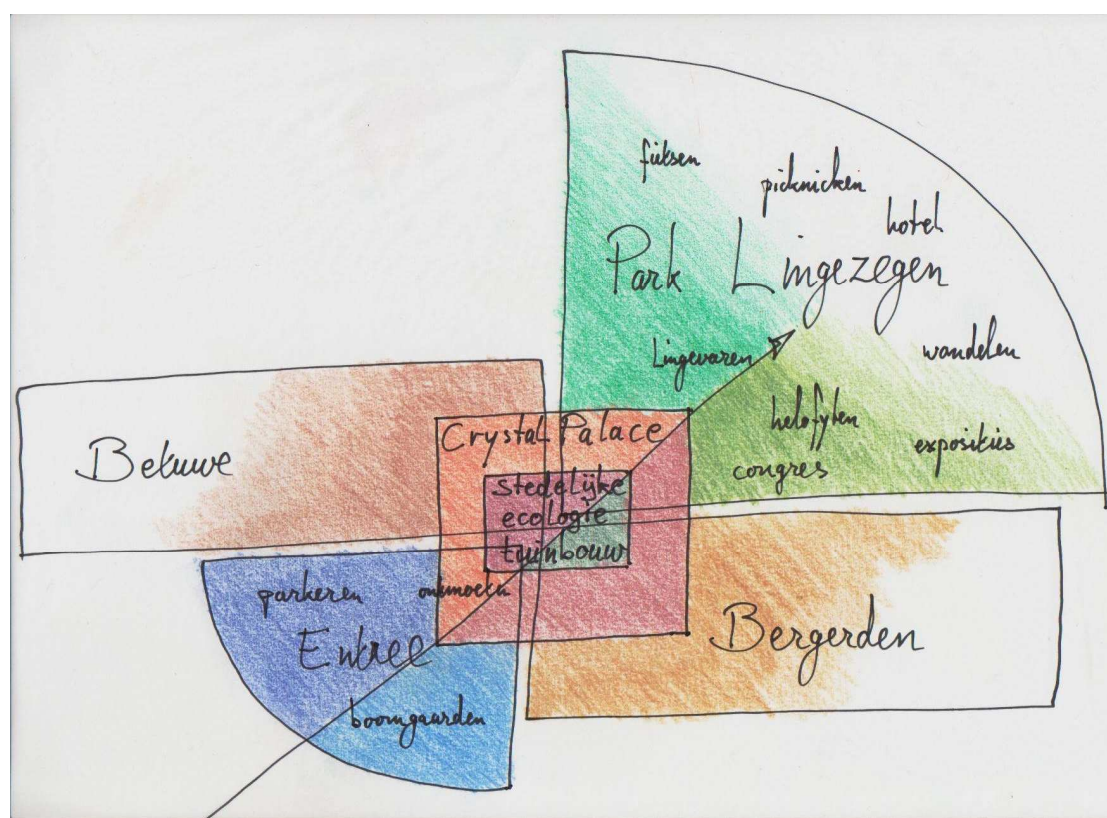 fietsen
picknicken
hotel
Park Lingezegen
Lingevaren
wandelen
helofyten
exposities
congres
Betuwe
Crystal Palace
stedelijke
ecologie
tuinbouw
parkeren
ontmoeten
Entree
boomgaarden
Bergerden